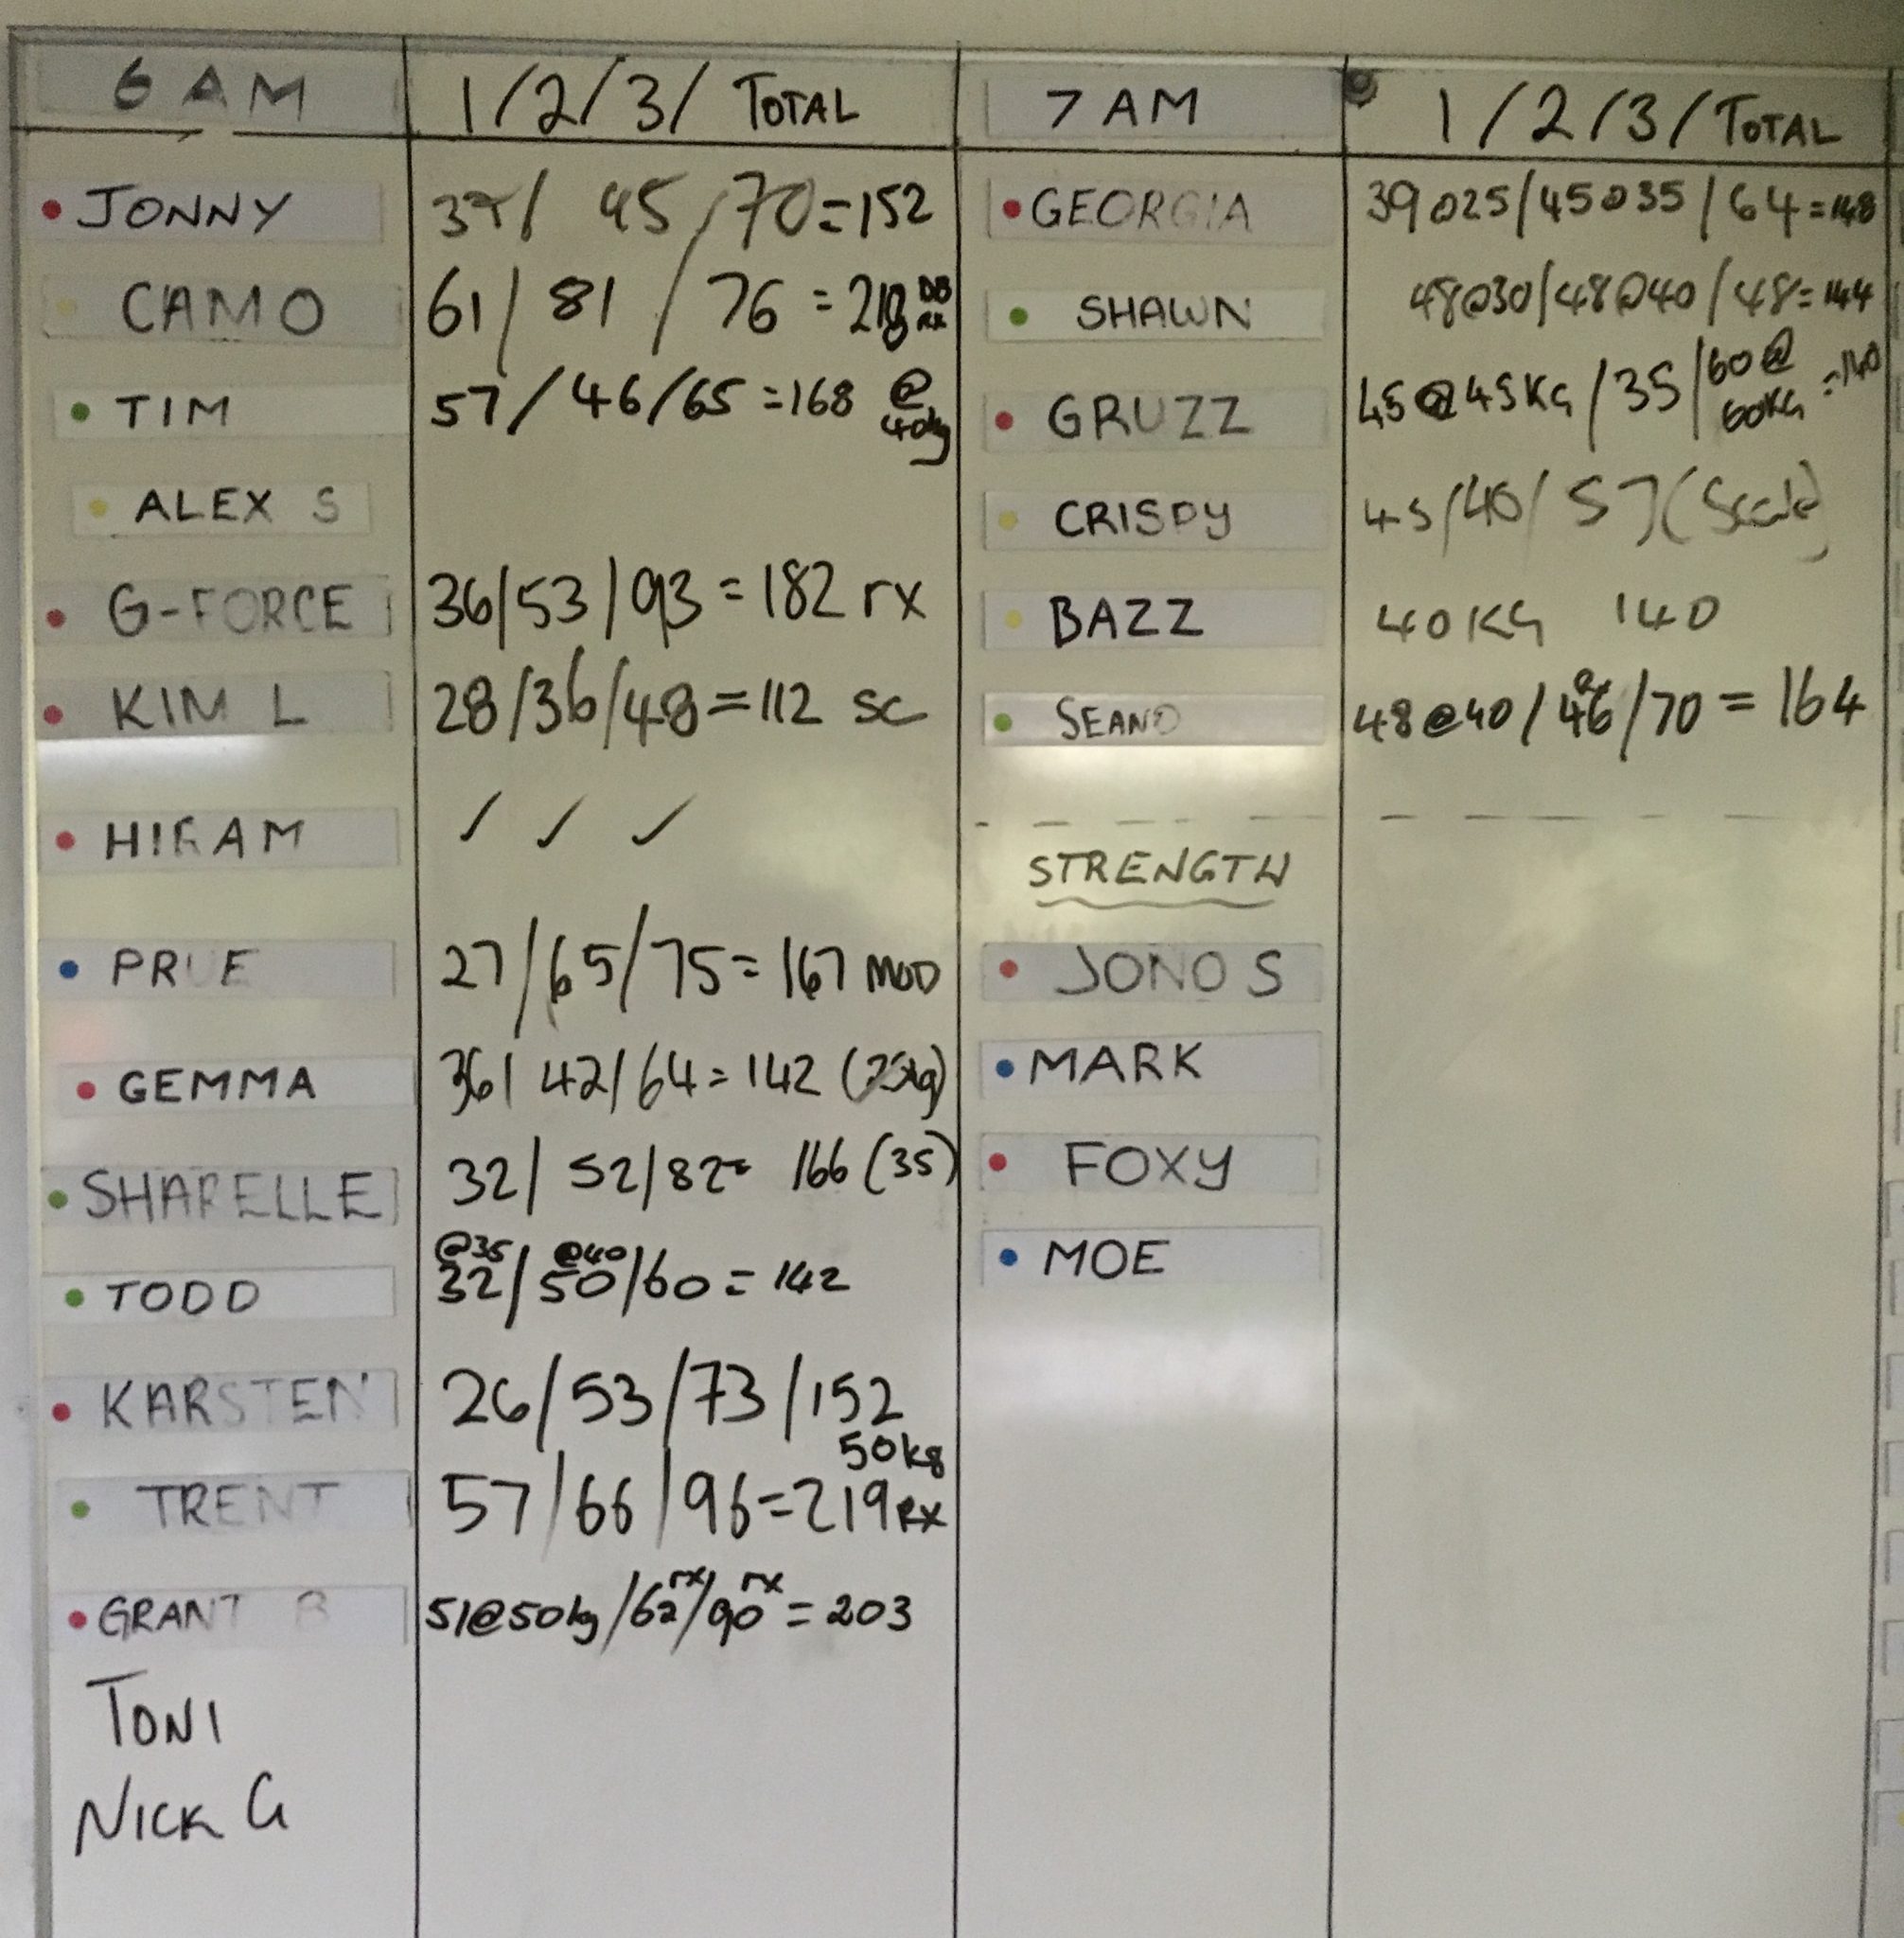 6 AM 1/2/3/ TOTAL
JONNY 37/ 45/70=152
CAMO 61/ 81 / 76 = 218 DB RX
TIM 57/46/65=168 @ 40kg
ALEX S
G-FORCE 36/53/93=182 rx
KIM L 28/36/48=112 SC
HIRAM ✓ ✓ ✓
PRUE 27/65/75=167 MOD
GEMMA 36/ 42/64=142 (25kg)
SHARELLE 32/ 52/82= 166 (35)
TODD @35 32/ @40 50/60=142
KARSTEN 26/53/73/152
50kg
TRENT 57/66/96=219 RX
GRANT B 51@50kg/62rx/90rx=203
TONI
NICK G
7 AM 1/2/3/TOTAL
GEORGIA 39@25/45@35/64=148
SHAWN 48@30/48@40/48=144
GRUZZ 45@45KG/35/60@ 60KG=140
CRISPY 45/40/57(Scale)
BAZZ 40KG 140
SEANO 48@40/46/70=164
STRENGTH
JONO S
MARK
FOXY
MOE